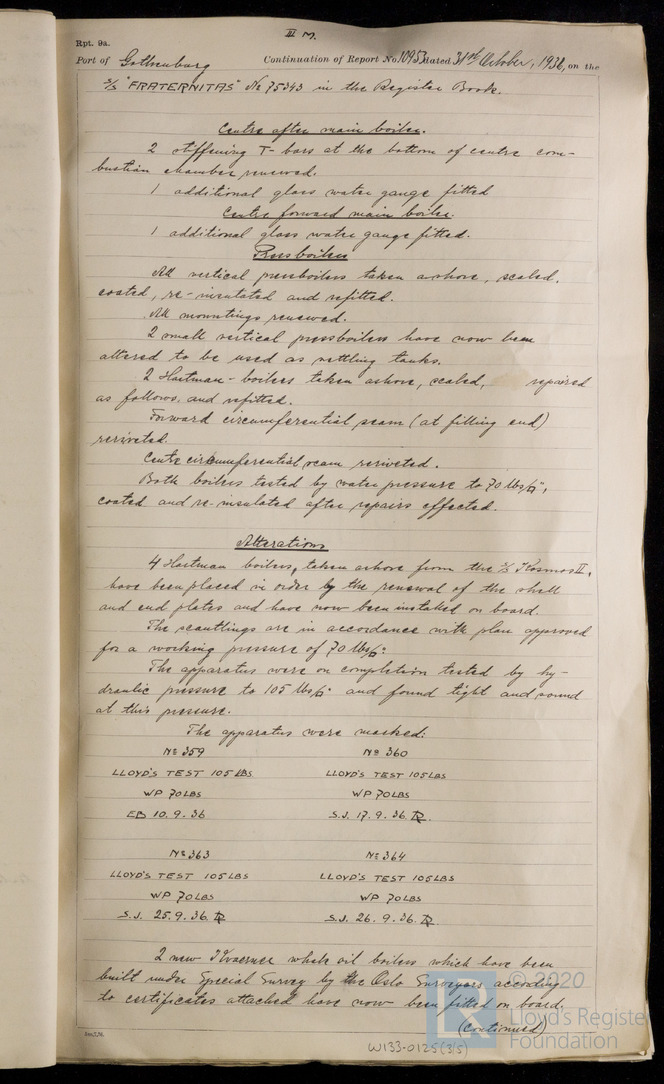 III M.
Rpt. 9a.
Port of Gothenburg Continuation of Report No. 10953 dated 31st October, 1936, on the
S/S "FRATERNITAS" No 75343 in the Register Book.
Centre after main boiler.
2 stiffening T-bars at the bottom of centre com-
bustion chamber renewed.
1 additional glass water gauge fitted
Centre forward main boiler.
1 additional glass water gauge fitted.
Pressboilers
All vertical pressboilers taken ashore, scaled,
coated, re-insulated and refitted.
All mountings renewed.
2 small vertical pressboilers have now been
altered to be used as settling tanks.
2 Hartman-boilers taken ashore, scaled, repaired
as follows and refitted.
Forward circumferential seam (at fitting end)
reriveted.
Centre circumferential seam reriveted.
Both boilers tested by water pressure to 70 lbs/□",
coated and re-insulated after repairs effected.
Alterations
4 Hartman boilers, taken ashore from the S/S Kosmos II,
have been placed in order by the renewal of the shell
and end plates and have now been installed on board.
The scantlings are in accordance with plan approved
for a working pressure of 70 lbs/□".
The apparatus were on completion tested by hy-
draulic pressure to 105 lbs/□" and found tight and sound
at this pressure.
The apparatus were marked:
No 359 No 360
LLOYD'S TEST 105 LBS LLOYD'S TEST 105 LBS
WP 70 LBS WP 70 LBS
EB 10.9.36 S.J. 17.9.36. LR
No 363 No 364
LLOYD'S TEST 105 LBS LLOYD'S TEST 105 LBS
WP 70 LBS WP 70 LBS
S.J. 25.9.36. LR S.J. 26.9.36. LR
2 new Kvaerner whale oil boilers which have been
built under Special Survey by the Oslo Surveyors according
to certificates attached have now been fitted on board.
(continued)
© 2020
Lloyd's Register
Foundation
W133-0125(3/5)